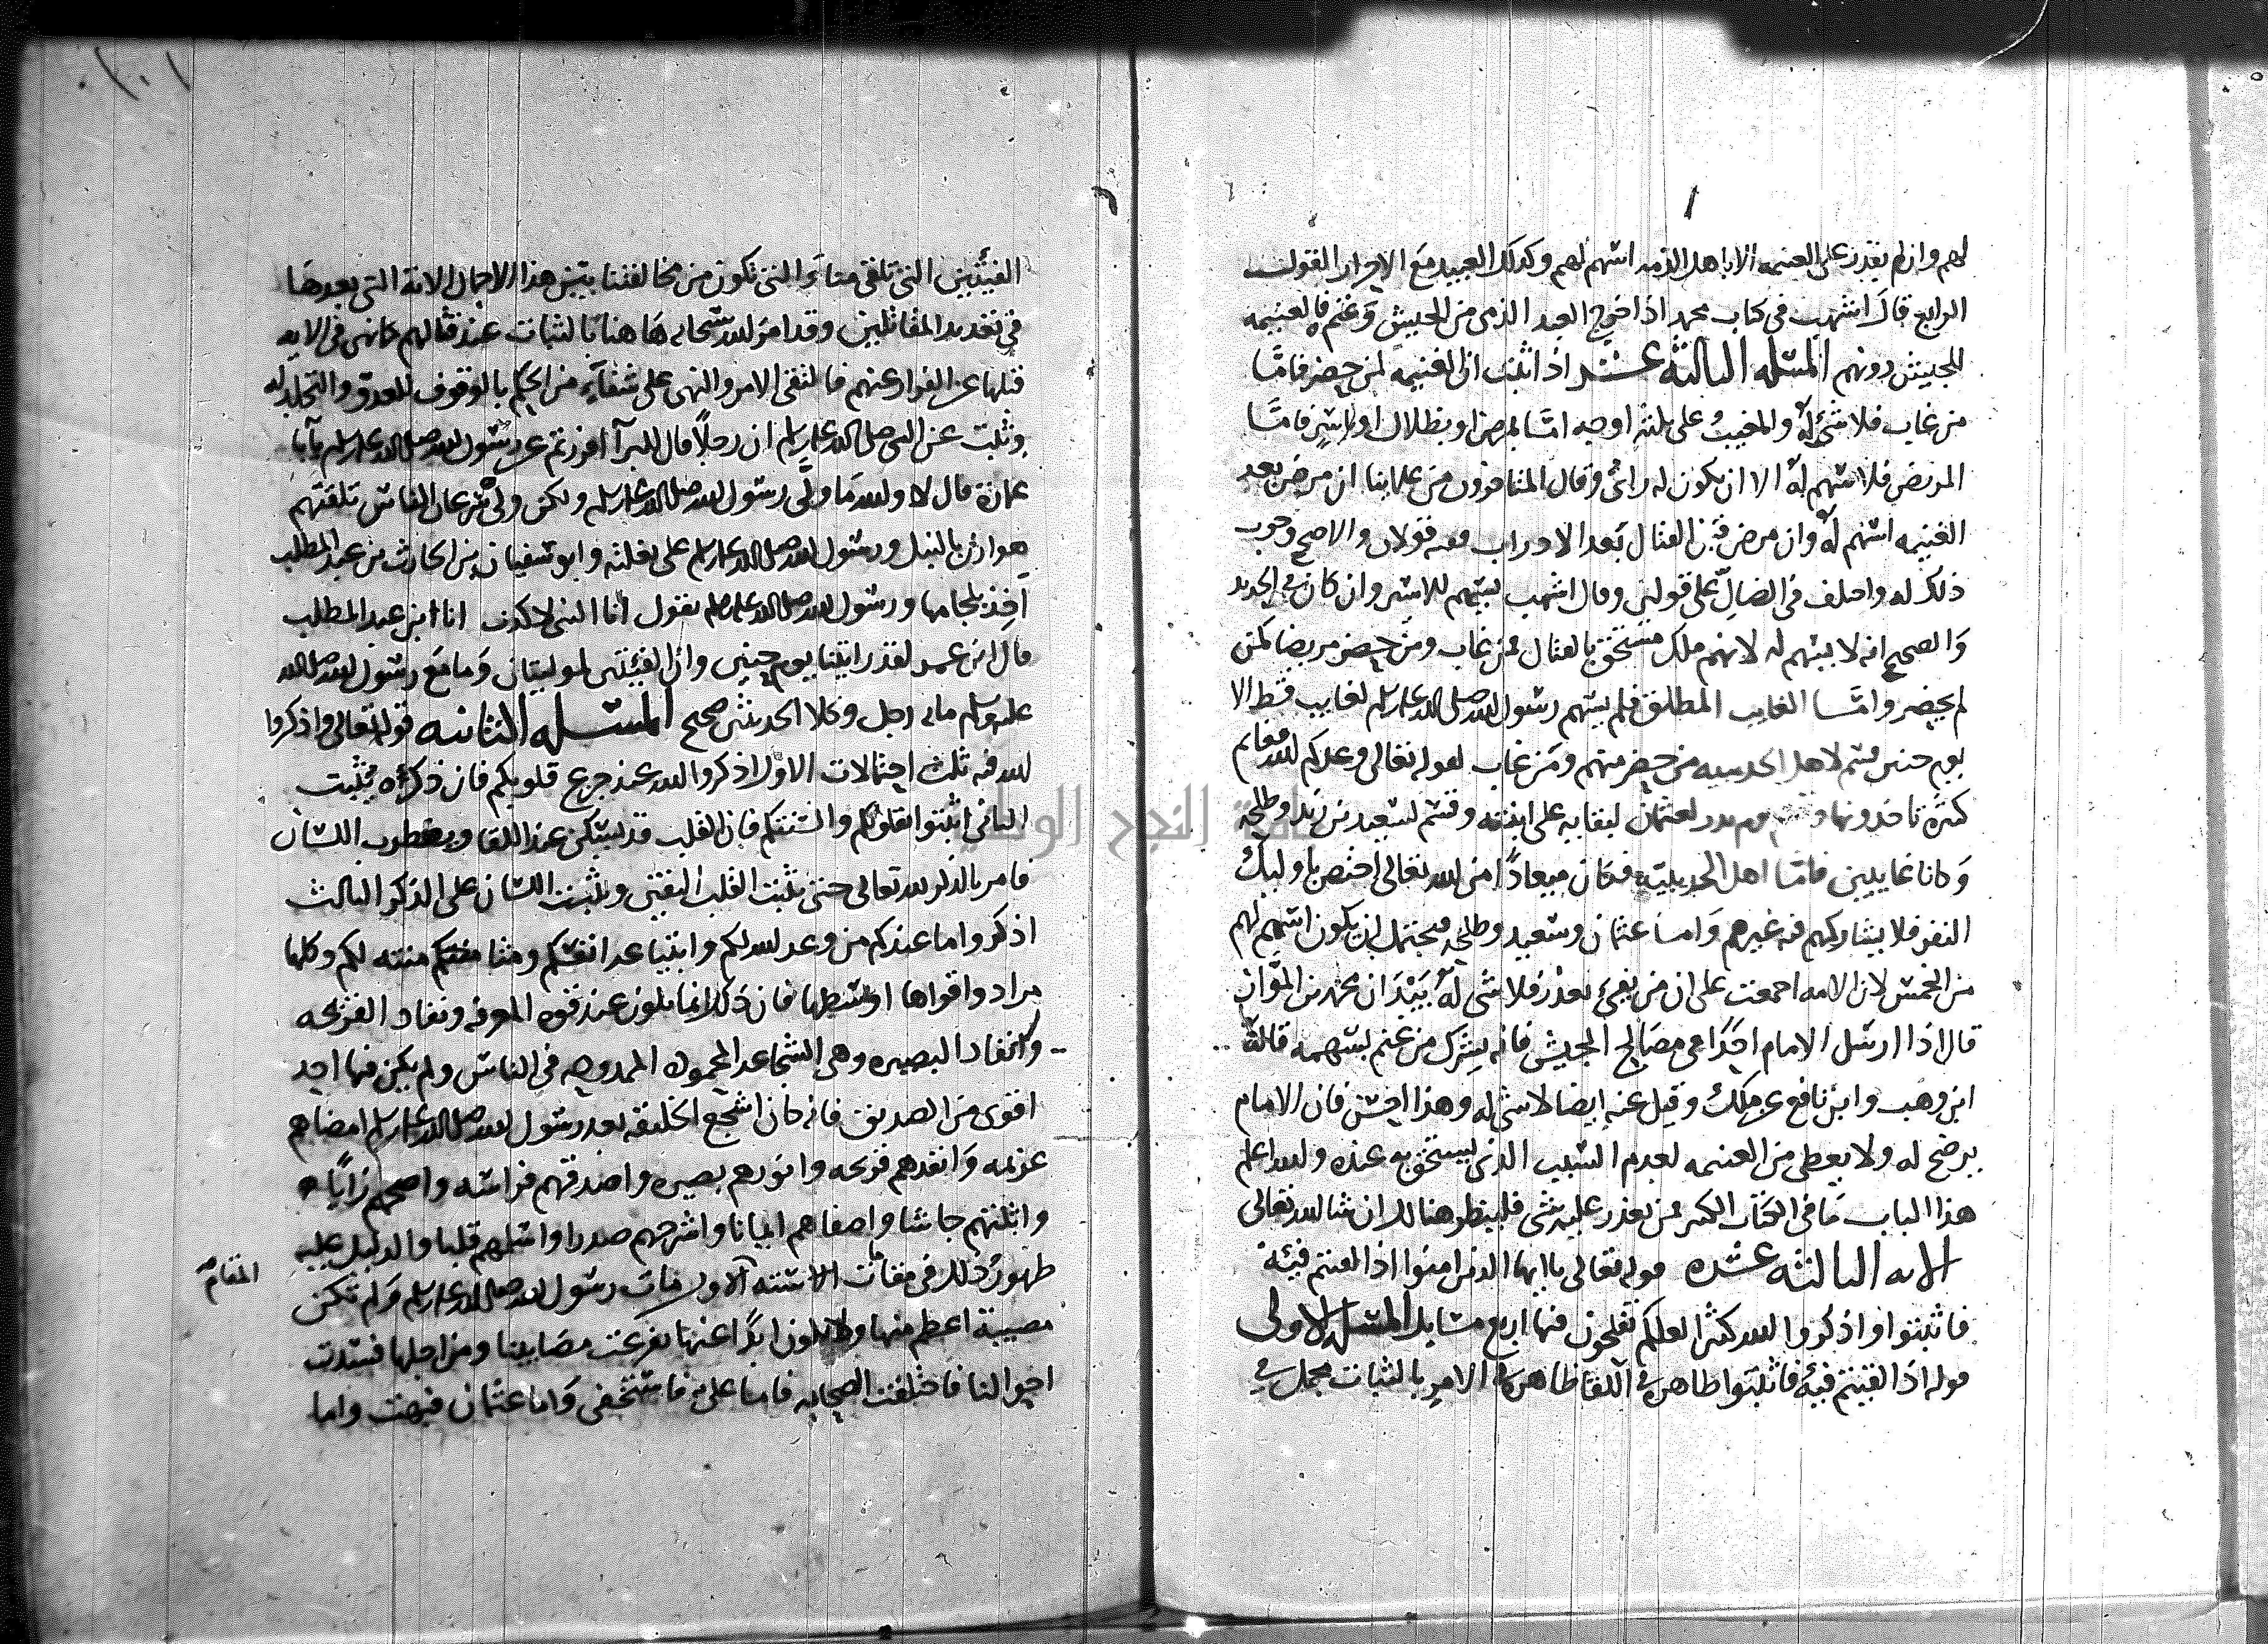 لهم وان لم يقدر على الغنيمه الا باهل الذمه اسهم لهم وكذلك العبيد مع الاحرار القول
الرابع قال اشهب في كتاب محمد اذا خرج العبد الذمي من الجيش وغنم فالغنيمه
للجيش دونهم المسله الثالثه عشر اذا ثبت ان الغنيمه لمن حضر فامّا
من غاب فلا شئ له والمغيب على ثلثه اوجه امّا بمرض او بظلال او باسر فامّا
المريض فلا سهم له الا ان يكون له رائ وقال المتاخرون من علمائنا ان مرض بعد
الغنيمه اسهم له وان مرض قبل القتال بعد الادراب ففيه قولان والاصح وجوب
ذلك له واختلف في الضال على قولين وقال اشهب يسهم للاسير وان كان في الحديد
والصحيح انه لا يسهم له لانهم ملك مستحق بالقتال فمن غاب ومن حضر مريضا كمن
لم يحضر وامّا الغايب المطلق فلم يسهم رسول الله صلى الله عليه وسلم لغايب قط الا
يوم حنين قسم لاهل الحديبيه من حضر منهم ومن غاب لقوله تعالى وعدكم الله مغانم
كثرة تاخذونها وقسم يوم بدر لعثمان لبقايه على ابنته وقسم لسعيد بن زيد وطلحه
وكانا غايبين فامّا اهل الحديبيه فكان ميعادًا من الله تعالى اختص باوليك
النفر فلا يشاركهم فيه غيرهم وامّا عثمان وسعيد وطلحه فيحتمل ان يكون اسهم لهم
من الخمس لان الامه اجمعت على ان من بقي بعذر فلا شي له بيد ان محمد بن المواز
قال اذا ارسل الامام احدًا في مصالح الجيش فانه يشرك من غنم بسهمه قاله
ابن وهب وابن نافع عن ملك وقيل عنه ايضا لا شي له وهذا احسن فان الامام
يرضخ له ولا يعطى من الغنيمه لعدم السبب الذي يستحق به عنده والله اعلم
هذا الباب ما في الكتاب الكبير فمن تعذر عليه شي فلينظر هنالك ان شا الله تعالى
الايه الثالثه عشره قوله تعالى يا ايها الذين امنوا اذا لقيتم فيئة
فاثبتوا واذكروا الله كثيرا لعلكم تفلحون فيها اربع مسايل المسله الاولى
قوله اذا لقيتم فيئة فاثبتوا ظاهره في اللقا ظاهره في الامر بالثبات مجمل في
الفيئتين التي تلقى منا والتي تكون من مخالفتنا بين هذا الاجمال الايه التي بعدها
في تعديد المقاتلين وقد امر الله سبحانه هاهنا بالثبات عند قتالهم كما نهى في الايه
قبلها عن الفرار عنهم فالتقى الامر والنهي على شفاء من الحكم بالوقوف للعدو والتجلد له
وثبت عن النبي صلى الله عليه وسلم ان رجلًا قال للبرآ افررتم عن رسول الله صلى الله عليه وسلم يا ابا
عمارة قال لا والله ما ولّى رسول الله صلى الله عليه وسلم ولكن ولى سرعان الناس تلقتهم
هوازن بالنبل ورسول الله صلى الله عليه وسلم على بغلته وابو سفيان بن الحارث بن عبد المطلب
آخذ بلجامها ورسول الله صلى الله عليه وسلم يقول انا النبي لا كذب انا ابن عبد المطلب
قال ابن عمر لقد رايتنا يوم حنين وان الفيئتين لموليتان وما مع رسول الله صلى الله
عليه وسلم مائه رجل وكلا الحديثين صحيح المسله الثانيه قوله تعالى واذكروا
الله فيه ثلث احتمالات الاول اذكروا الله عند جزع قلوبكم فان ذكره يثبت
الثاني اثبتوا بقلوبكم والسنتكم فان القلب قد يسكن عند اللقا ويضطرب اللسان
فامر بالذكر لله تعالى حتى يثبت القلب اليقين ويثبت اللسان على الذكر الثالث
اذكروا ما عندكم من وعد الله لكم وابتياعه انفسكم ومثامنتكم منته لكم وكلها
مراد واقواها اوسطها فان ذلك انما يكون عند قوه المعرفه ونفاد القريحه
واتقاد البصيره وهي الشجاعه المحموده الممدوحه في الناس ولم يكن فيها احد
اقوى من الصديق فانه كان اشجع الخليقه بعد رسول الله صلى الله عليه وسلم امضاهم
عزيمه وانفدهم قريحه وانورهم بصيره واصدقهم فراسه واصحهم رايًا
واثبتهم جاشا واصفاهم ايمانا واشرحهم صدرا واسلمهم قلبا والدليل عليه
ظهور ذلك في مقامات الاسته الاول مات رسول الله صلى الله عليه وسلم ولم تكن
المقام
مصيبة اعظم منها ولا يكون ابدًا عنها تفرعت مصايبنا ومن اجلها فسدت
احوالنا فاختلفت الصحابه فاما علي فاستخفى واما عثمان فبهت واما